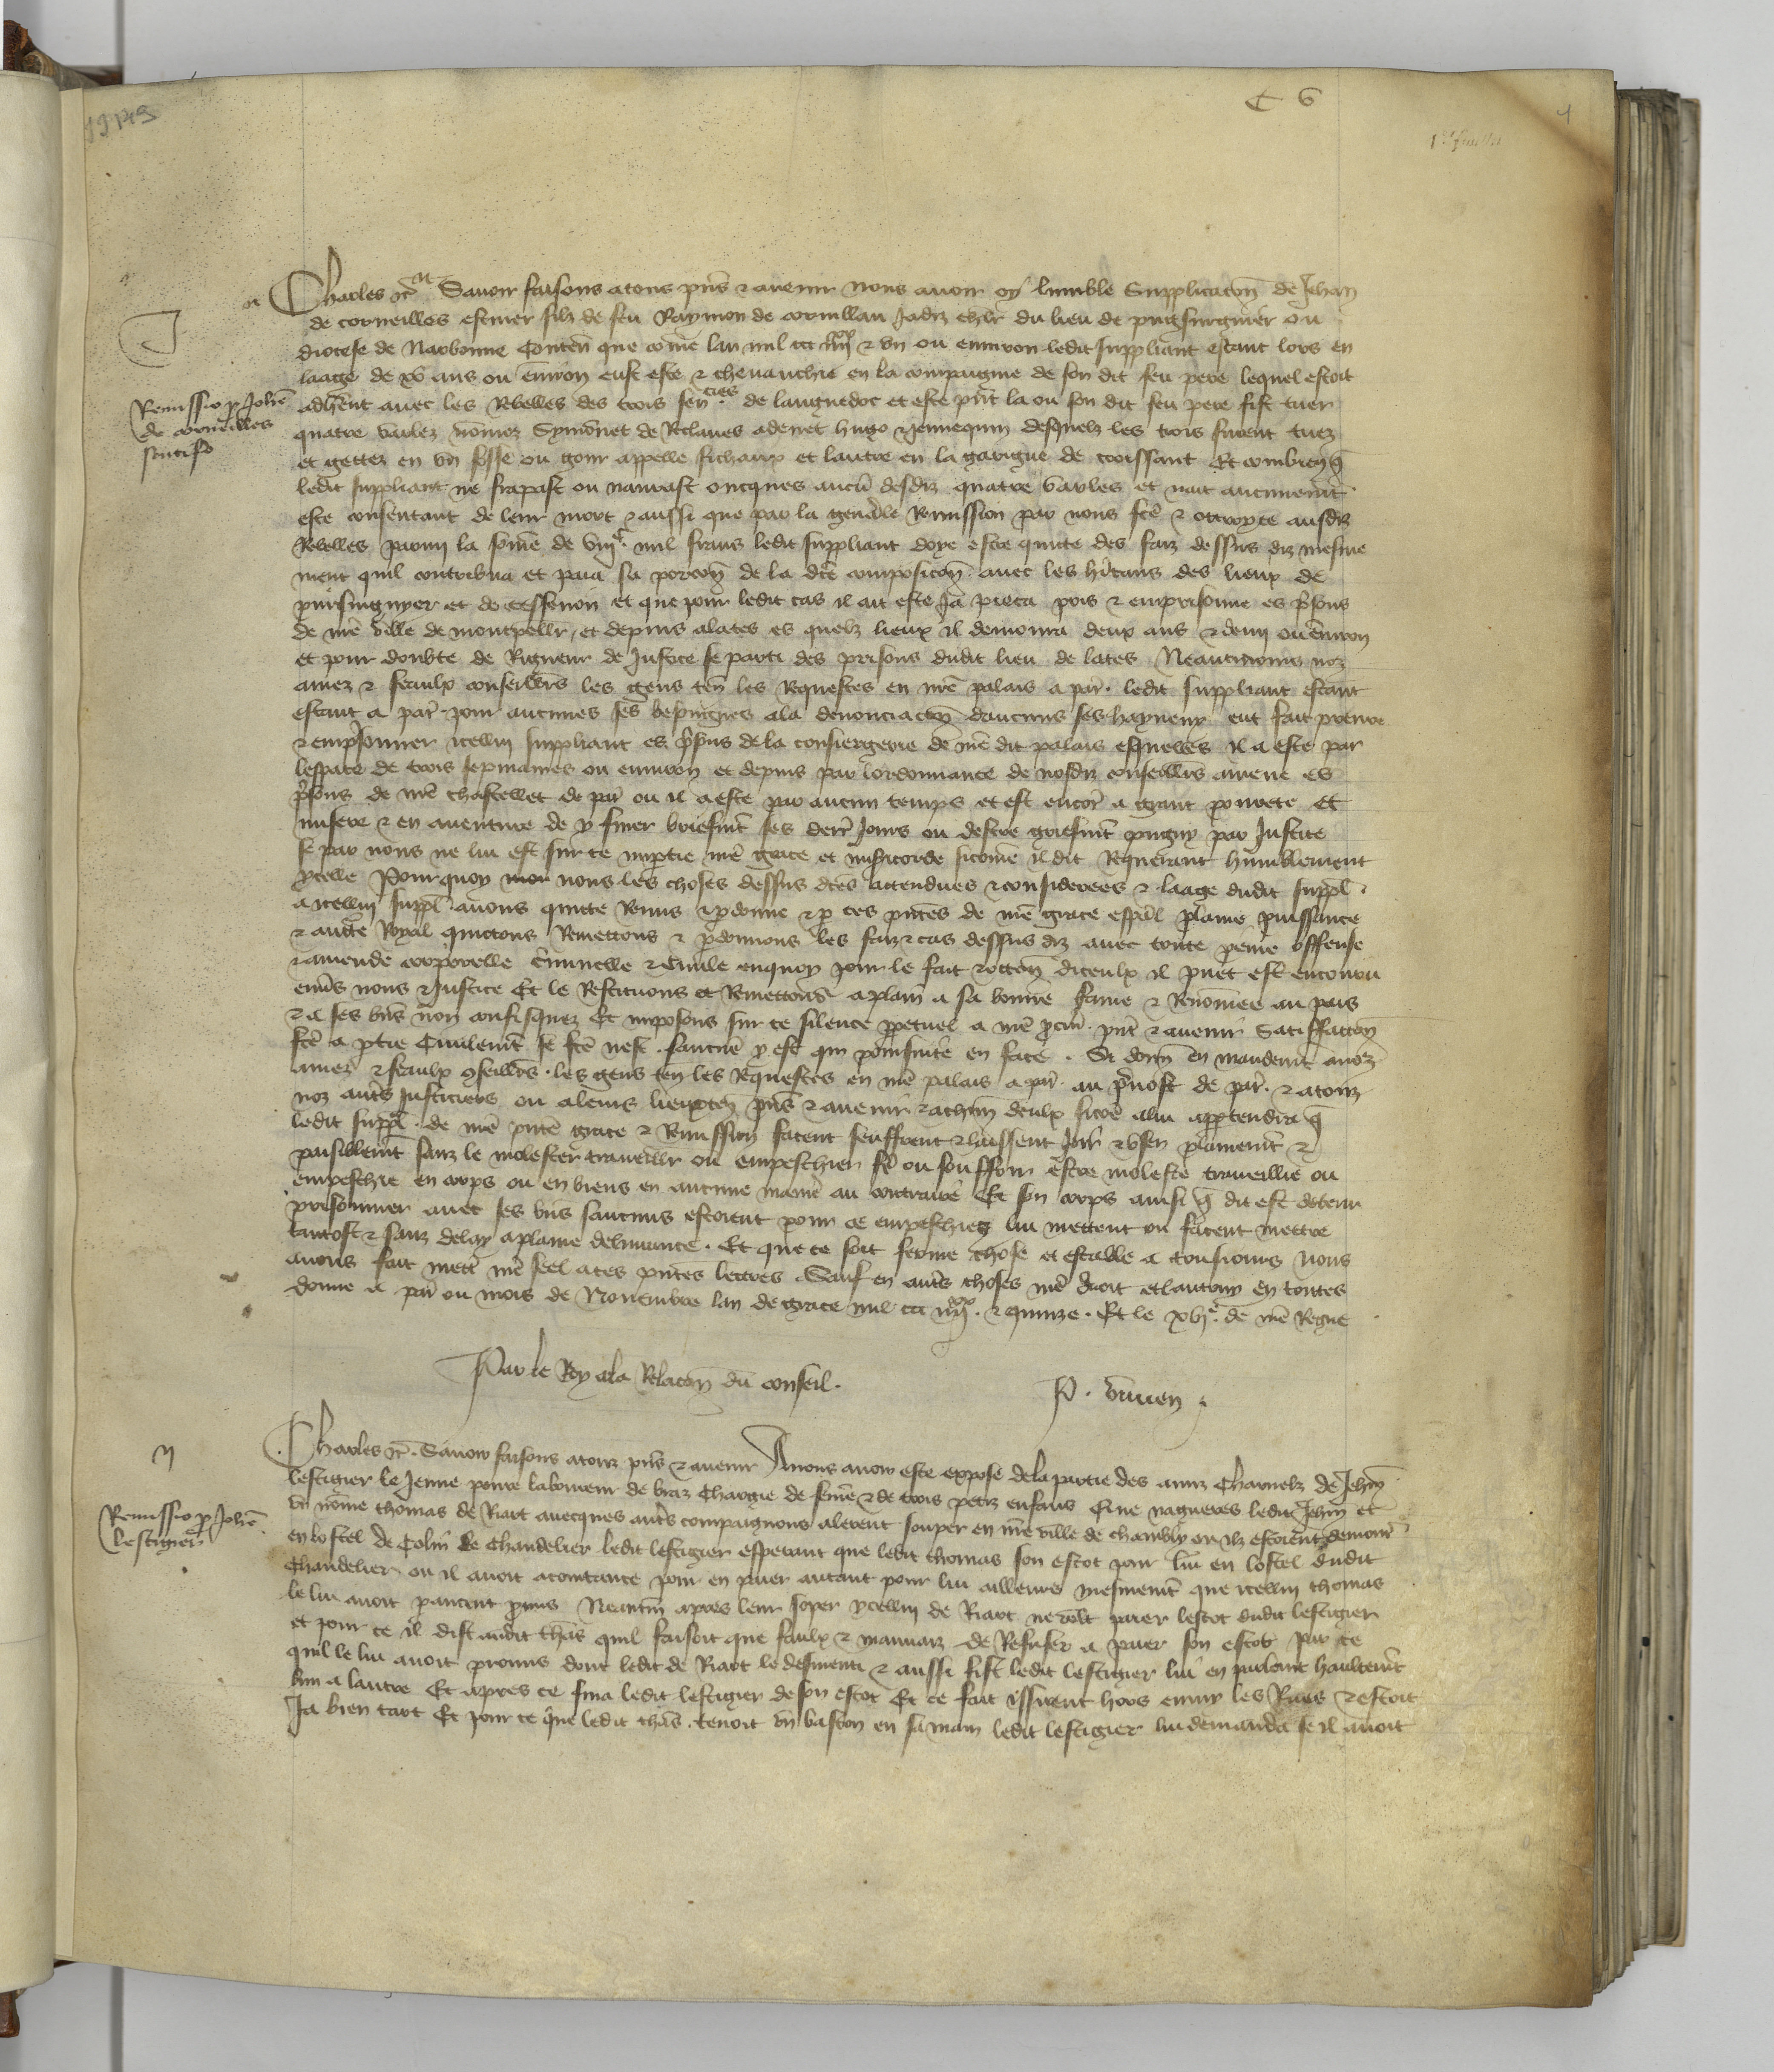 C 6
1
J
Remissio p Johe
de corneilles
scutifo
Charles etc. Savoir faisons a tous pns & avenir nous avoir oy lumble Supplicacon de Jehan
de corneilles escuier filz de feu Raymon de cornillan Jadiz chlr du lieu de puigsurguier ou
diocese de Narbonne Conten que come lan mil ccc iiiixx & un ou environ ledit suppliant estant lors en
laage de xv ans ou environ eust este & chevauchie en la compaignie de son dit feu pere lequel estoit
adherent avec les Rebelles des trois sen.cies de languedoc et este pnt la ou son dit feu pere fist tuer
quatre varlez nomez Symonet de Reclaues adenet hugo & Jennequin desquelz les trois furent tuez
et gettez en un fosse ou gour appelle fichaux et lautre en la garrigue de croissant Et combien q
ledit suppliant ne frapast ou navrast oncques aucu desdiz quatre varles et nait aucunemt
este consentant de leur mort & aussi que par la generale Remission par nous fce & ottroyee ausdiz
Rebelles parmy la some de viijc mil frans ledit suppliant doye estre quicte des faiz dessus diz mesme
ment quil contribua et paia sa porcon de la dce composicon avec les hitans des lieux de
puisurguyer et de cessenon et que pour ledit cas il ait este Ja pieca pris & emprisonne es psons
de nre ville de montpellr, et depuis a lates es quelz lieux il demoura deux ans & demi ou environ
et pour doubte de Rigueur de Justice se parti des prisons dudit lieu de lates Neantmoins noz
amez & feaulx conseillrs les gens ten les Requestes en nre palais a par. ledit suppliant estant
estant a par pour aucunes ses besoingnes a la denonciacion daucuns ses hayneux ont fait prenre
& emprisonner icellui suppliant es psons de la consiergerie de nre dit palais esquelles il a este par
lespace de trois sepmaines ou environ et depuis par lordonnance de nosdiz conseillrs amene es
psons de nre chastellet de par ou il a este par aucun temps et est encor a grant povrete et
misere & en aventure de y finer briefmt ses derr Jours ou destre griefmt pugny par Justice
se par nous ne lui est sur ce impartie nre grace et misericorde sicome il dit Requerant humblement
ycelle Pour quoy nous les choses dessus dces attendues & considerees & laage dudit suppl
a icellui suppl avons quicte Remis & pdonne & p ces pntes de nre grace espal plaine puissance
& aucte Royal quictons Remettons & pdonnons les faiz & cas dessus diz avec toute peine offense
& amende corporelle criminelle & civile en quoy pour le fait & occon diceulx il puet est encouru
envs nous & Justice Et le Restituons et Remettons a plain a sa bonne fame & Renomee au pais
& a ses bns non confisquez Et imposons sur ce silence ppetuel a nre pcur pnt & avenir Satisfaccon
fce a ptie Civilemt se fce nest. Si donn en mandemt a noz
amez & feaulx cseillrs. les gens ten les Requestes en nre palais a par. au pvost de par. & a touz
noz auts Justiciers ou a leurs lieuxten pns & avenir & a chun deulx sicoe a lui apptendra q
ledit suppl. de nre pnte grace & Remission facent seuffrent & laissent Joir & user plainemt &
paisiblemt sanz le molester travaillr ou empeschier fe ou souffrir estre moleste travaillie ou
empeschie en corps ou en biens en aucune manie au contraire Et son corps ainsi q dit est detenu
prisonnier avec ses bns saucuns estoient pour ce empeschiez lui mettent ou facent mettre
tantost & sanz delay a plaine delivrance. Et que ce soit ferme chose et estable a tousiours Nous
avons fait mett nre seel a ces pntes lettres. Sauf en auts choses nre droit et lautruy en toutes
donne a par ou mois de Novembre lan de grace mil ccc iiiixx & quinze. Et le xvje de nre Regne
Par le Roy a la Relacon du conseil.
P.
Remissio p Johe
lestigier
Charles etc. Savoir faisons a touz pns & avenir A nous avoir este expose de la partie des amis charnelz de Jehan
lestigier le Jeune povre laboureur de braz Chargie de feme & de trois petiz enfans Que nagueres ledit Jehan et
un nome thomas de Riart avecques auts compaignons alerent souper en nre ville de chambly ou ilz estoient demour
en lostel de Colin le Chandelier ledit lestigier esperant que ledit thomas son escot pour lui en lostel dudit
Chandelier ou il avoit acointance pour en paier autant pour lui ailleurs mesmemt que icellui thomas
le lui avoit pavant promis Neantm apres leur soper ycellui de Riart ne volt paier lescot dudit lestigier
et pour ce il dist audit thas quil faisoit que faulx & mauvaiz de Refuser a paier son escot par ce
quil le lui avoit promis dont ledit de Riart le desmenti & aussi fist ledit lestigier lui en parlant haultemt
lun a lautre Et apres ce fina ledit lestigier de son escot Et ce fait issirent hors enmy les Rues & estoit
Ja bien tart Et pour ce que ledit thas. tenoit un baston en sa main ledit lestigier lui demanda se il avoit